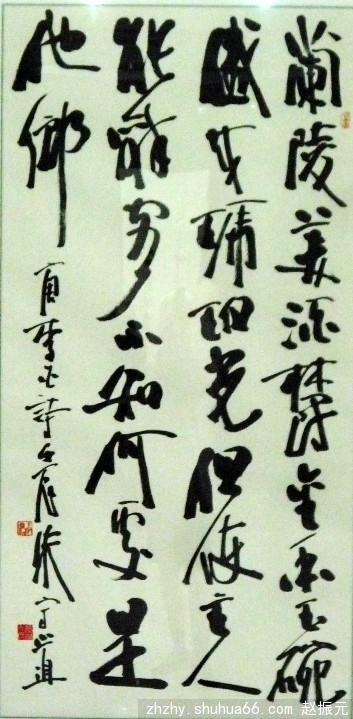 蘭陵美酒鬱金香玉碗
盛来琥珀光但使主人
能醉客不知何處是
他鄉
唐李白詩
zhzhy.shuhua66.com 赵振元